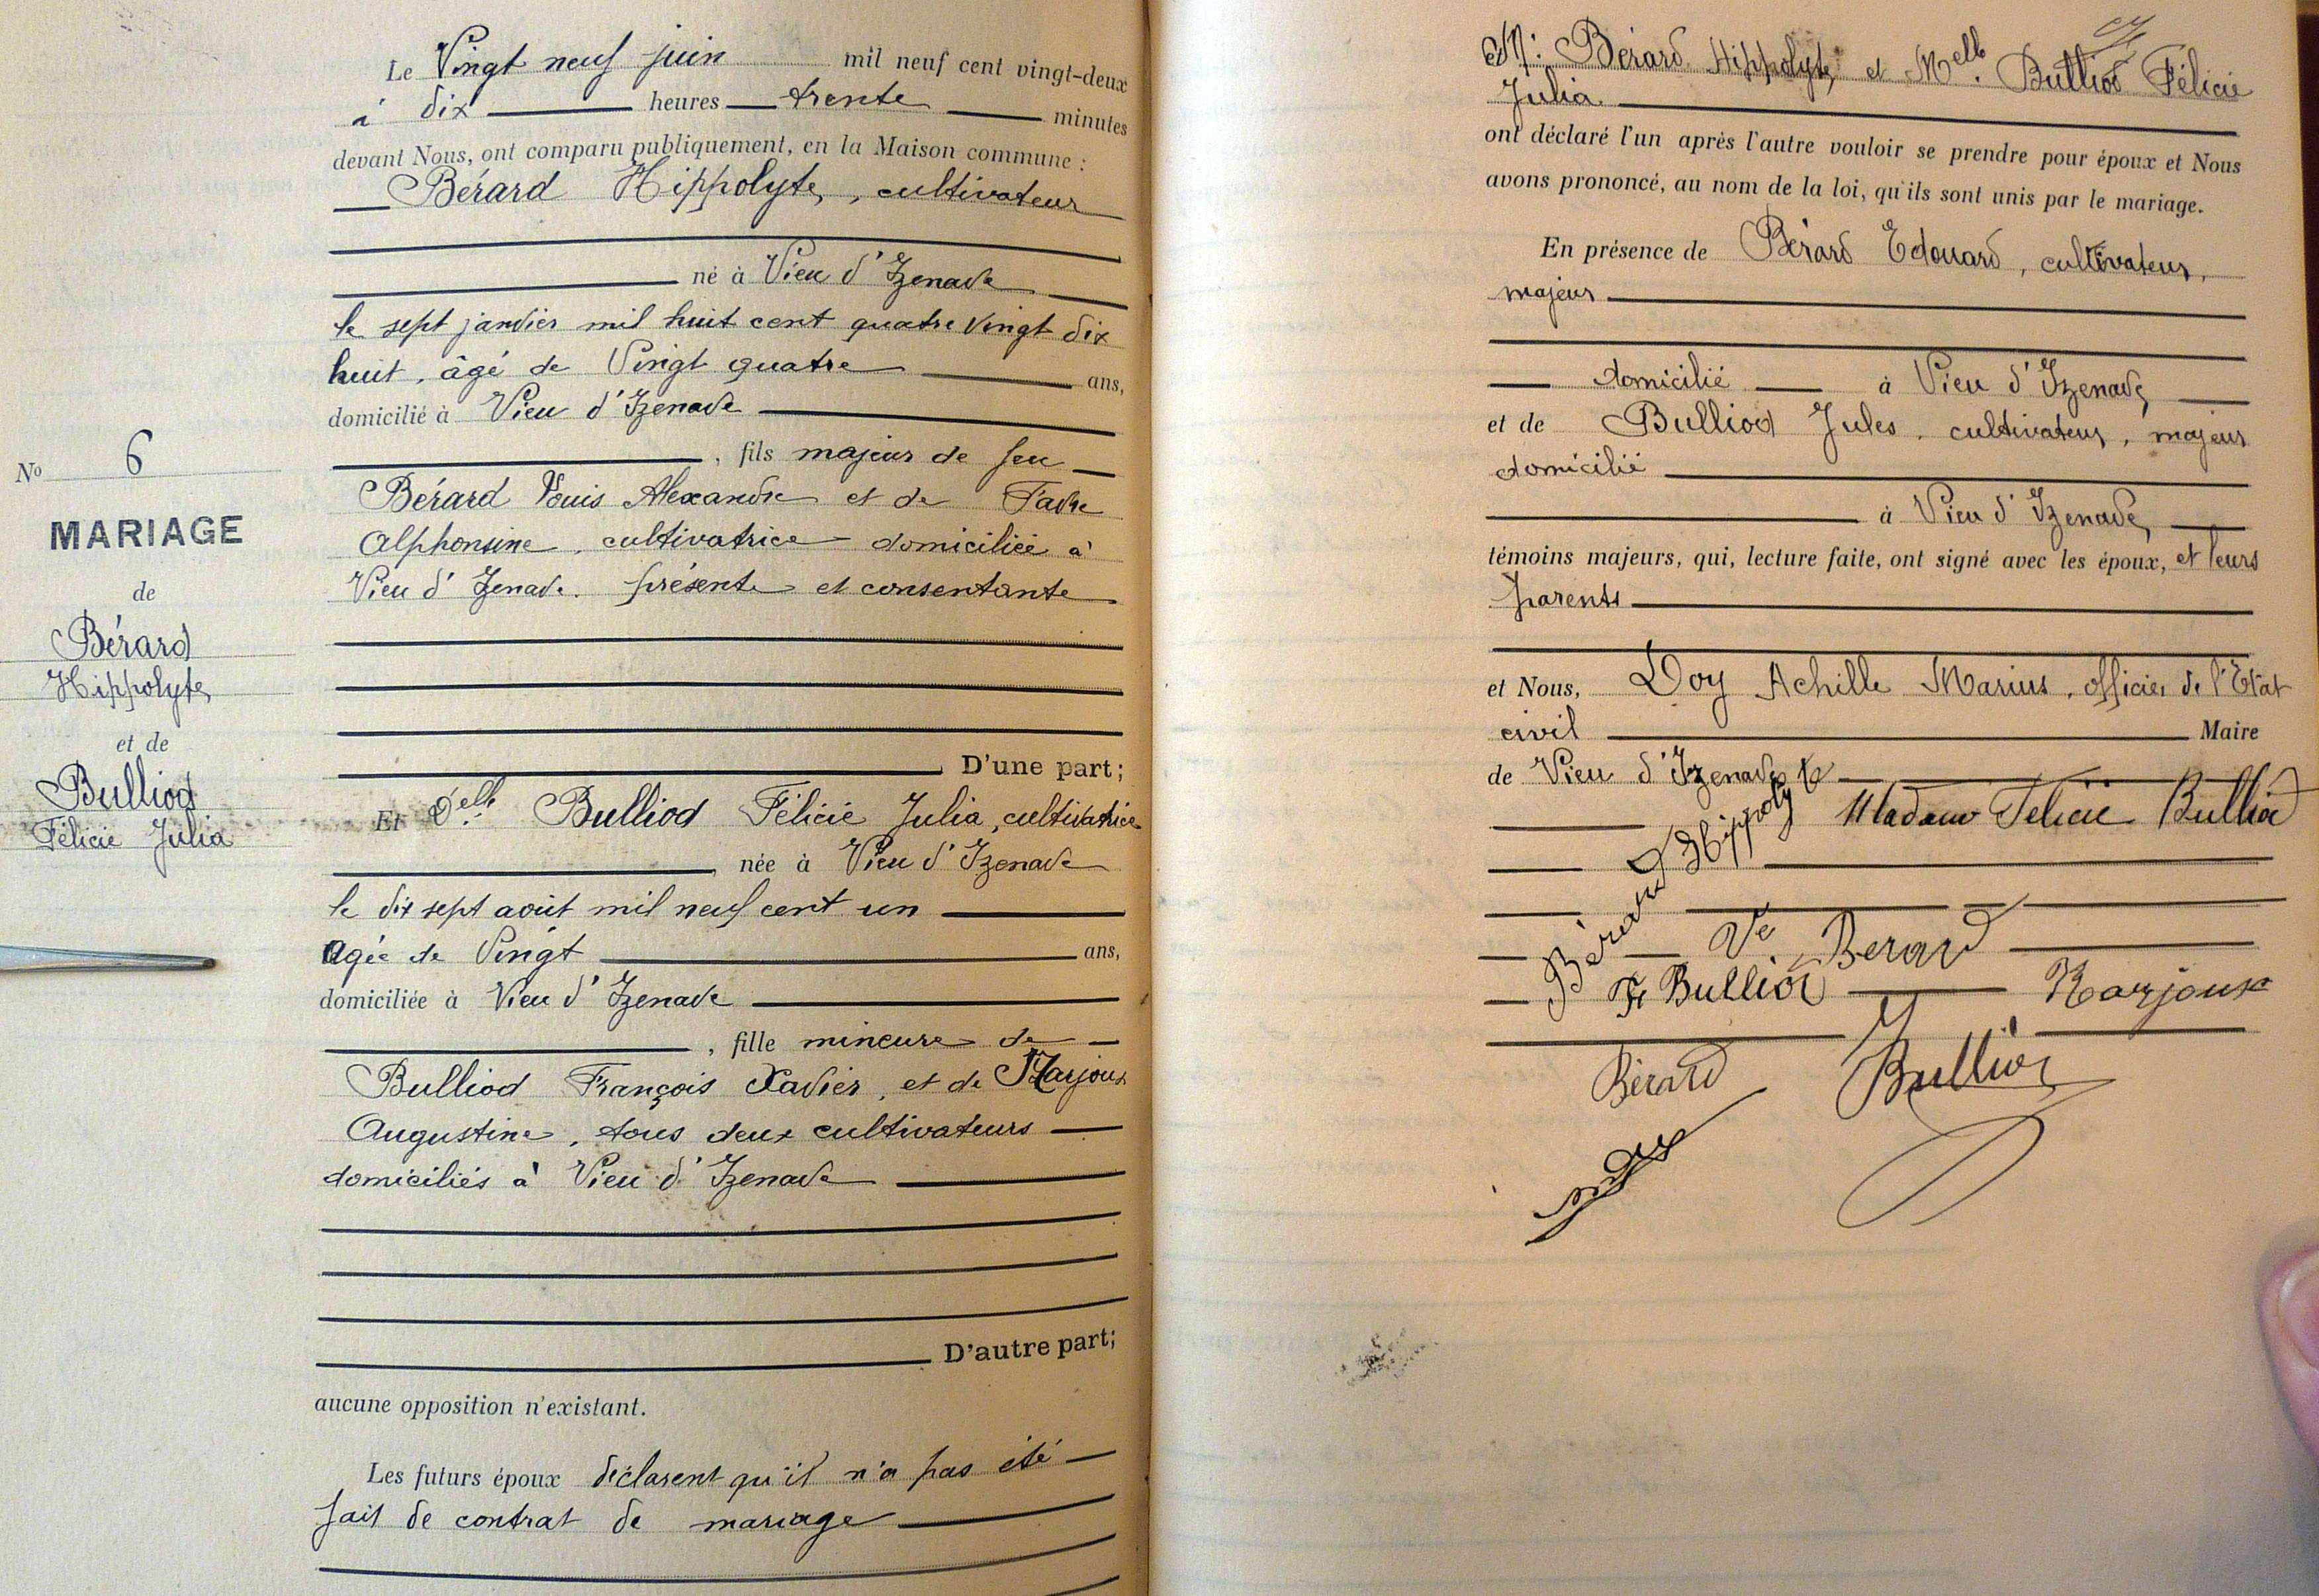 Le Vingt neuf juin mil neuf cent vingt-deux
à dix heures trente minutes
devant Nous, ont comparu publiquement, en la Maison commune :
Bérard Hippolyte, cultivateur
né à Vieu d'Izenave
le sept janvier mil huit cent quatre vingt dix
huit, âgé de Vingt quatre ans,
domicilié à Vieu d'Izenave
, fils majeur de feu
Bérard Louis Alexandre et de Favre
Alphonsine, cultivatrice domiciliée à
Vieu d'Izenave. présente et consentante
D'une part ;
Et Delle Bulliod Félicie Julia, cultivatrice
, née à Vieu d'Izenave
le dix sept août mil neuf cent un
agée de Vingt ans,
domiciliée à Vieu d'Izenave
, fille mineure de
Bulliod François Xavier, et de Marjoux
Augustine, tous deux cultivateurs
domiciliés à Vieu d'Izenave
D'autre part ;
aucune opposition n'existant.
Les futurs époux déclarent qu'il n'a pas été
fait de contrat de mariage
No 6
MARIAGE
de
Bérard
Hippolyte
et de
Bulliod
Félicie Julia
M. Bérard Hippolyte et Melle Bulliod Félicie
Julia
ont déclaré l'un après l'autre vouloir se prendre pour époux et Nous
avons prononcé, au nom de la loi, qu'ils sont unis par le mariage.
En présence de Bérard Edouard, cultivateur,
majeur
domicilié à Vieu d'Izenave
et de Bulliod Jules, cultivateur, majeur
domicilié
à Vieu d'Izenave,
témoins majeurs, qui, lecture faite, ont signé avec les époux, et leurs
parents
et Nous, Doy Achille Marius, officier de l'Etat
civil Maire
de Vieu d'Izenave
Bérard Hippolyte
Madame Felicie Bulliod
Ve Berard
F Bulliod
Marjoux
Bérard
J Bulliod